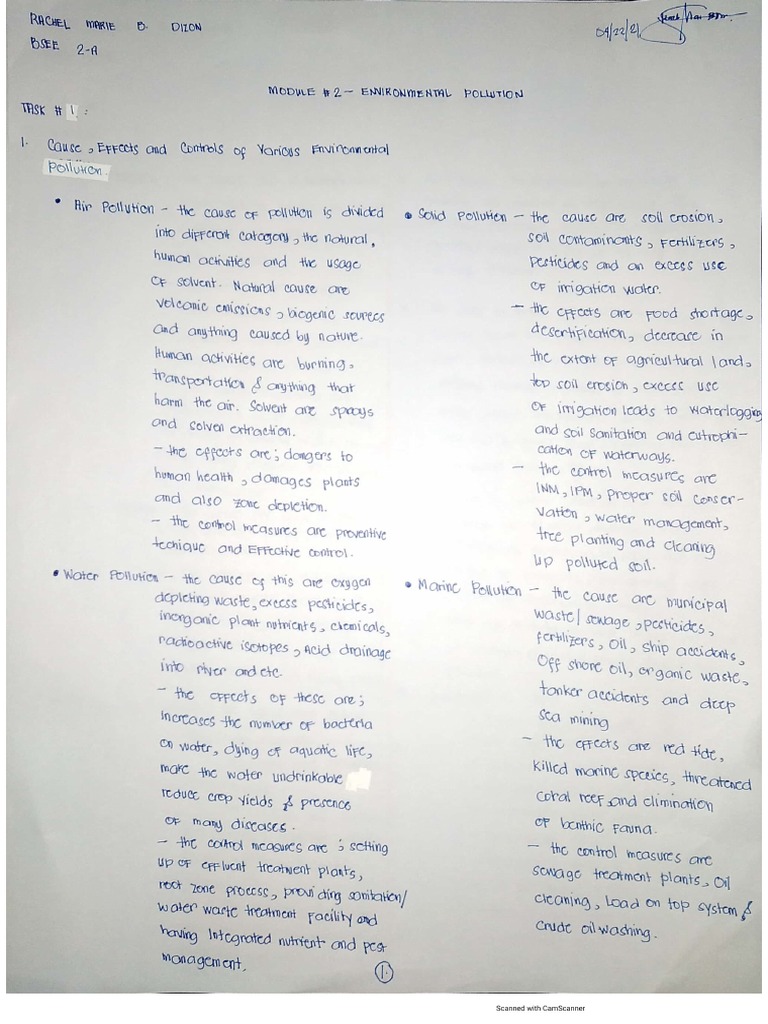 RACHEL MARIE B. DIZON
BSEE 2-A
04/22/21
MODULE #2 - ENVIRONMENTAL POLLUTION
TASK # 1 :
1. Cause, Effects and Controls of Various Environmental
Pollution.
• Air Pollution - the cause of pollution is divided
into different category, the natural,
human activities and the usage
of solvent. Natural cause are
volcanic emissions, biogenic sources
and anything caused by nature.
Human activities are burning,
transportation & anything that
harm the air. Solvent are sprays
and solven extraction.
- the effects are; dangers to
human health, damages plants
and also zone depletion.
- the control measures are preventive
technique and Effective control.
• Water Pollution - the cause of this are oxygen
depleting waste, excess pesticides,
inorganic plant nutrients, chemicals,
radioactive isotopes, Acid drainage
into river and etc.
- the effects of these are;
increases the number of bacteria
on water, dying of aquatic life,
make the water undrinkable
reduce crop yields & presence
of many diseases.
- the control measures are; setting
up of effluent treatment plants,
root zone process, providing sanitation/
water waste treatment facility and
having Integrated nutrient and pest
management.
• Solid Pollution - the cause are soil erosion,
soil contaminants, Fertilizers,
Pesticides and an excess use
of irrigation water.
- the effects are food shortage,
desertification, decrease in
the extent of agricultural land,
top soil erosion, excess use
of irrigation leads to waterlogging
and soil sanitation and eutrophi-
cation of waterways.
- the control measures are
INM, IPM, proper soil conser-
vation, water management,
tree planting and cleaning
up polluted soil.
• Marine Pollution - the cause are municipal
waste/sewage, pesticides,
fertilizers, oil, ship accidents,
Off shore oil, organic waste,
tanker accidents and deep
sea mining
- the effects are red tide,
killed marine species, threatened
coral reef, and elimination
of benthic fauna.
- the control measures are
sewage treatment plants, oil
cleaning, Load on top system &
crude oil washing.
1.
Scanned with CamScanner